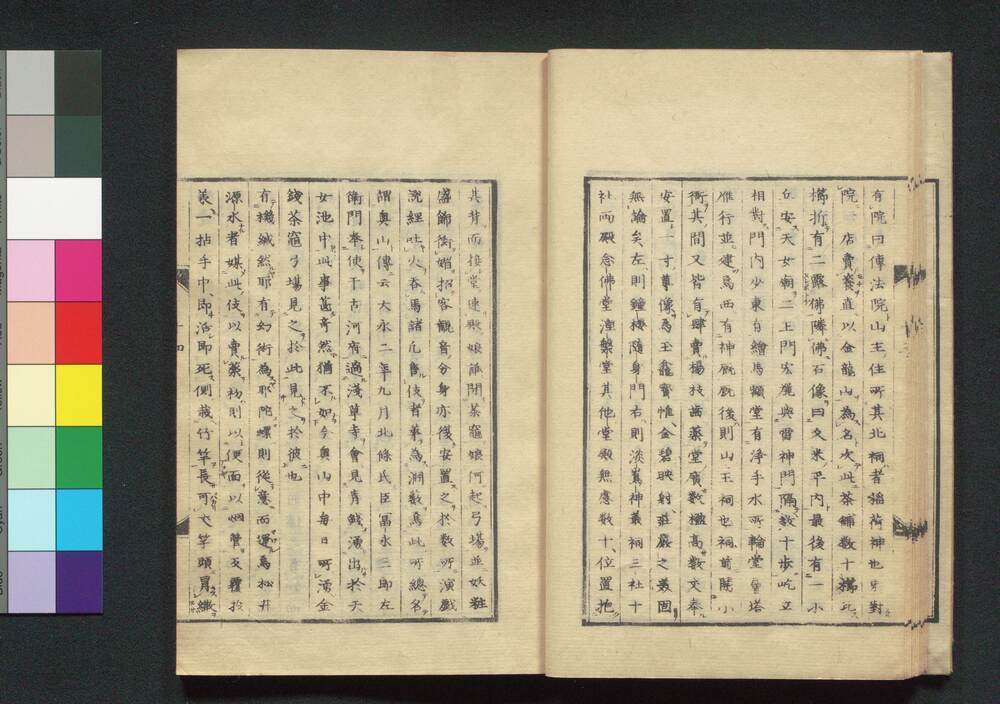 有院曰傳法院山主住所其北祠者稲荷神也對
院一店賣麥直以金龍山為名次此茶鋪數十
折有二露佛隣佛石像曰久米平内最後有一小
丘安天女廟二王門宏麗與雷神門隔數十歩屹立
相對門内少東有繪馬額堂有浄手水所輪堂塔
雁行並建焉西有神廐廐後則山王祠也祠前賤小
街其間又皆有肆賣楊枝歯薬堂廣數楹高數丈奉
安置一寸尊像為玉龕寶帷金碧映射莊嚴之美固
無論矣左則鐘樓隨身門右則淡嶌神叢祠三社十
社而殿念佛堂涅槃堂其他堂殿無慮數十位置抱
其背而接堂連
盛飾衒媚招客觀音分身亦後安置之於數所演戲
説經吐火吞馬諸凡售伎者華為淵數焉此所總名
謂奥山傳云大永二年九月北條氏臣冨永三郎左
衛門奉使于古河府過淺草寺會見青錢湧出於天
女池中此事甚奇然猶不如今奥山中毎日所湧金
錢茶竈弓場見之於此見之於彼也
有機緘然耶有幻術為耶陀螺則從意而運焉松井
源水者媒此伎以賣薬初則以便面以烟管反覆投
之一拈手中即活即死側載竹竿長可丈竿頭